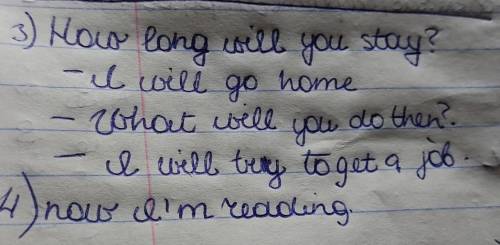 3) How long will you stay?
- I will go home
- What will you do then?.
- I will try to get a job.
4) now I'm reading.